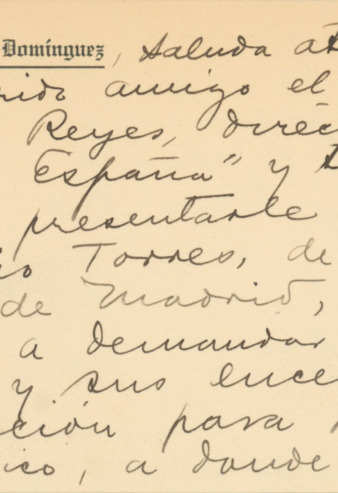 Domínguez, saluda at
rido amigo el
Reyes, direc
España" y
presentarle
co Torres, de
de Madrid,
a demandar
y sus luce
ción para
ico, a donde